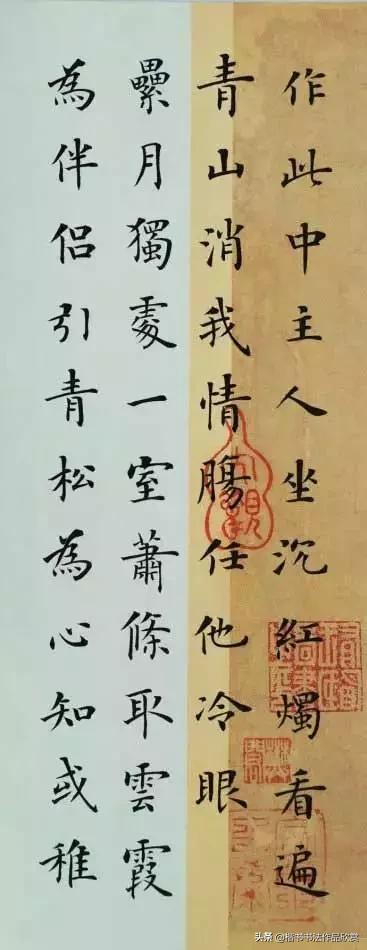 作此中主人坐沉紅燭看遍
青山消我情腸任他冷眼
纍月獨處一室蕭條取雲霞
為伴侣引青松為心知或稚
头条 @楷书书法作品欣赏